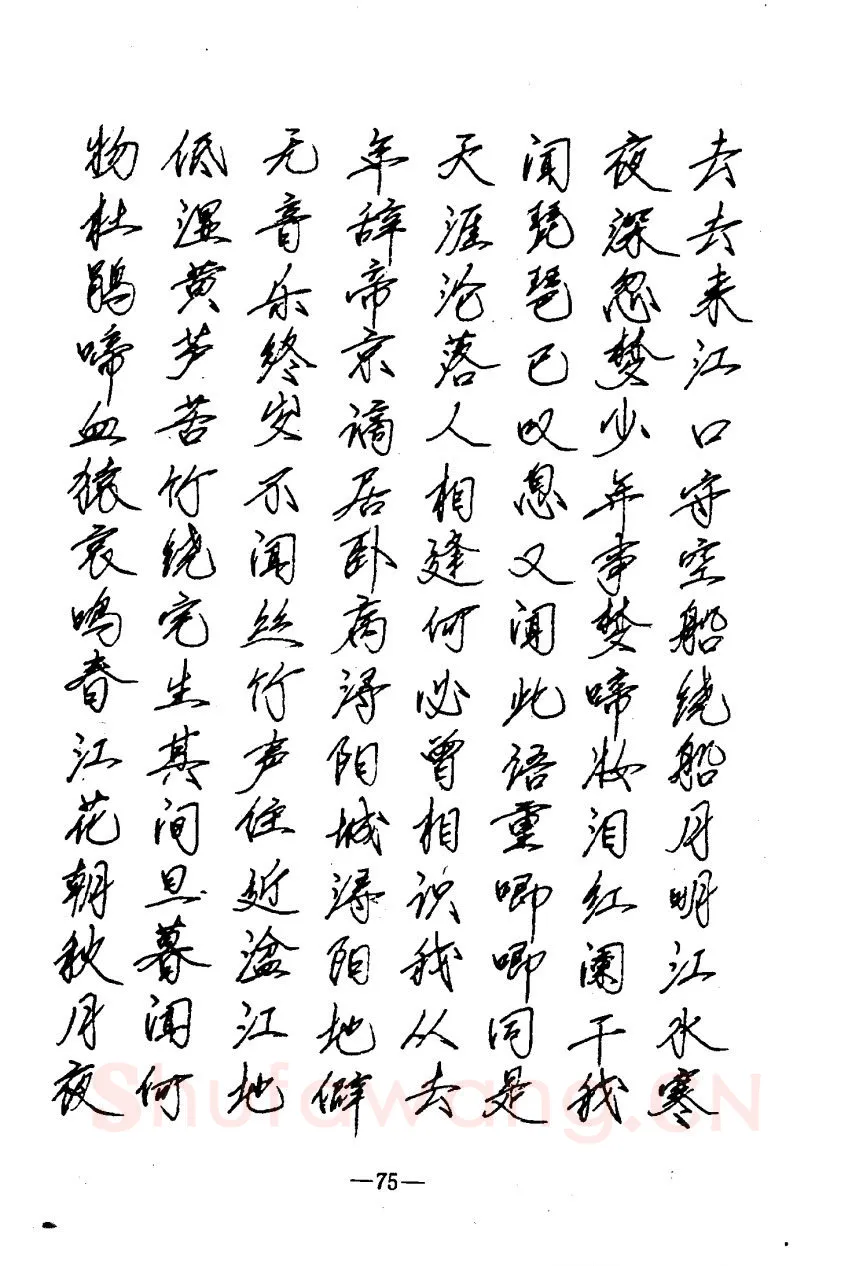 去去来江口守空船绕船月明江水寒
夜深忽梦少年事梦啼妆泪红阑干我
闻琵琶已叹息又闻此语重唧唧同是
天涯沦落人相逢何必曾相识我从去
年辞帝京谪居卧病浔阳城浔阳地僻
无音乐终岁不闻丝竹声住近湓江地
低湿黄芦苦竹绕宅生其间旦暮闻何
物杜鹃啼血猿哀鸣春江花朝秋月夜
Shufawang.CN
—75—